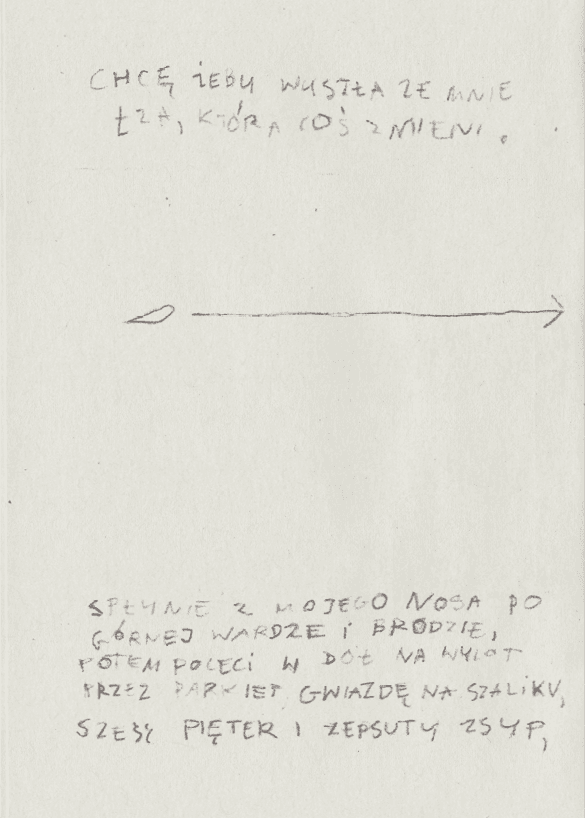 CHCĘ ŻEBY WYSZŁA ZE MNIE
ŁZA, KTÓRA COŚ ZMIENI.
SPŁYNIE Z MOJEGO NOSA PO
GÓRNEJ WARDZE I BRODZIE,
POTEM POLECI W DÓŁ NA WYLOT
PRZEZ PARKIET, GWIAZDĘ NA SZALIKU,
SZEŚĆ PIĘTER I ZEPSUTY ZSYP,